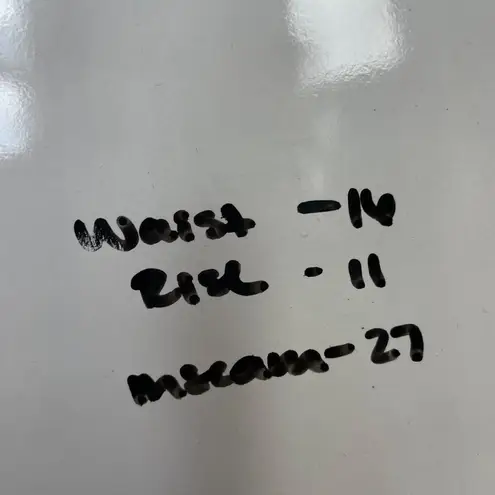 Waist - 16
Rise - 11
Inseam - 27